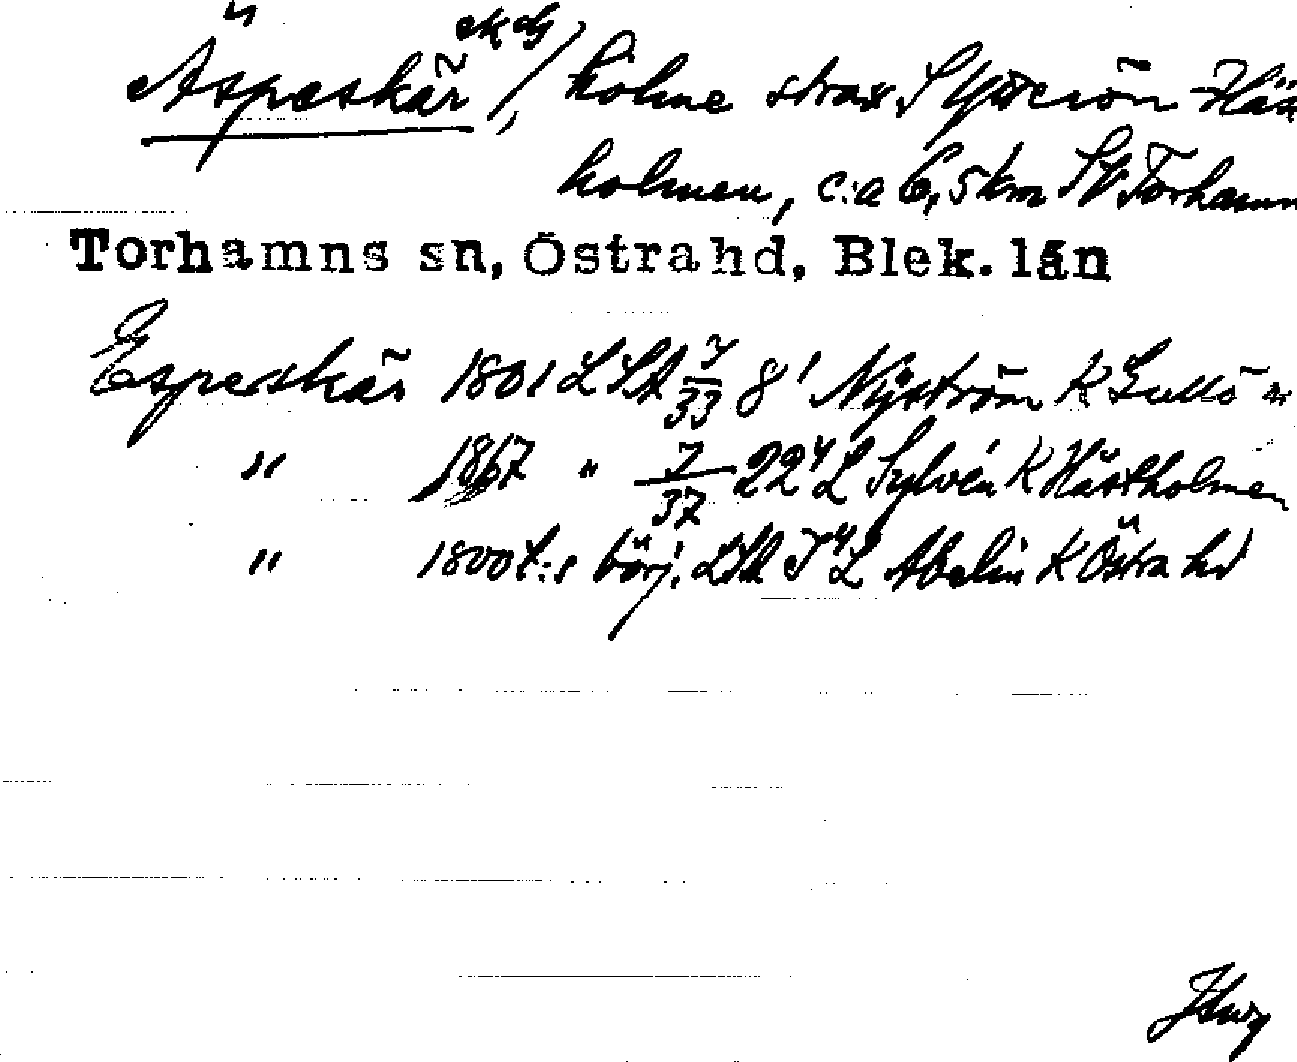 Äspeskär, holme strax S Ytterön Häst
holmen, c:a 6,5 km SV Torhamn
Torhamns sn, Östra hd, Blek. län
Espeskär 1801 LSA 7/33 8' Nyström K
" 1867 " 7/37 22 L Sylvén K Hästholmen
" 1800 t:s börj. LSA L Abelin K Östra hd